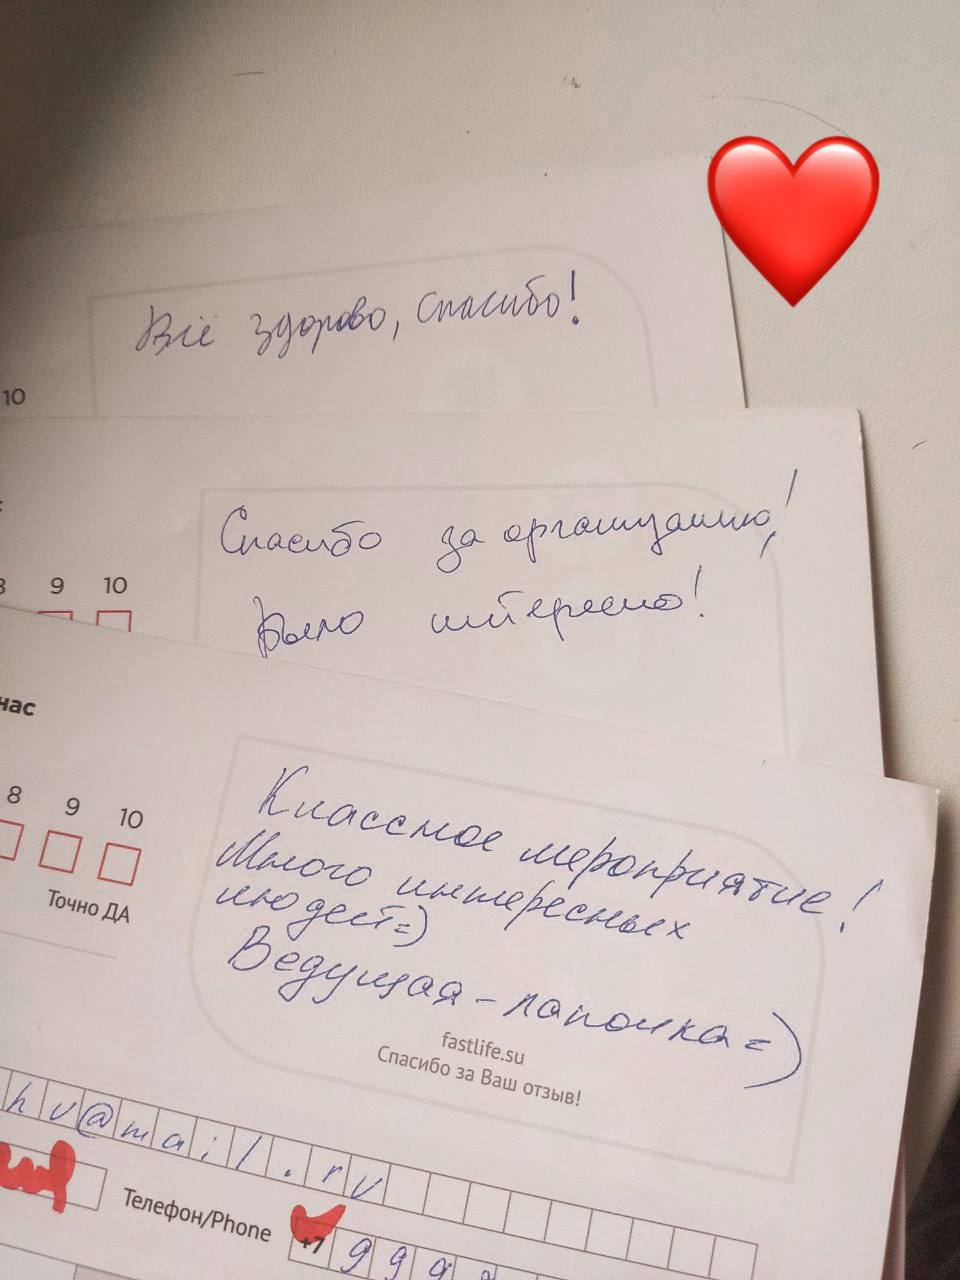 Всё здорово, спасибо!
10
Спасибо за организацию!
8 9 10
Было интересно!
час
Классное мероприятие!
8 9 10
Много интересных
людей=)
Точно ДА
Ведущая - лапочка=)
fastlife.su
Спасибо за Ваш отзыв!
hv@mail.ru
Телефон/Phone +7 999